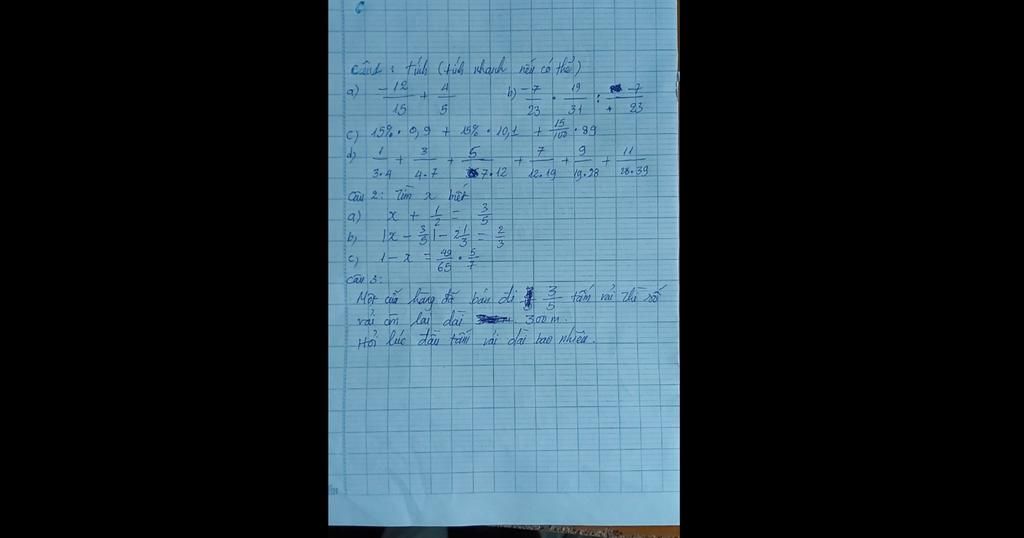 Câu 1 : tính (tính nhanh nếu có thể)
a) -12/15 + 4/5 b) -7/23 . 19/31 : -7/23
c) 15% . 0,9 + 15% . 10,1 + 15/100 . 89
d) 1/3.4 + 3/4.7 + 5/7.12 + 7/12.19 + 9/19.28 + 11/28.39
Câu 2 : Tìm x biết
a) x + 1/2 = 3/5
b) |x - 3/5| - 2 1/3 = 2/3
c) 1 - x = 49/65 . 5/7
Câu 3 :
Một cửa hàng đã bán đi 3/5 tấm vải thì số
vải còn lại dài 300m.
Hỏi lúc đầu tấm vải dài bao nhiêu.